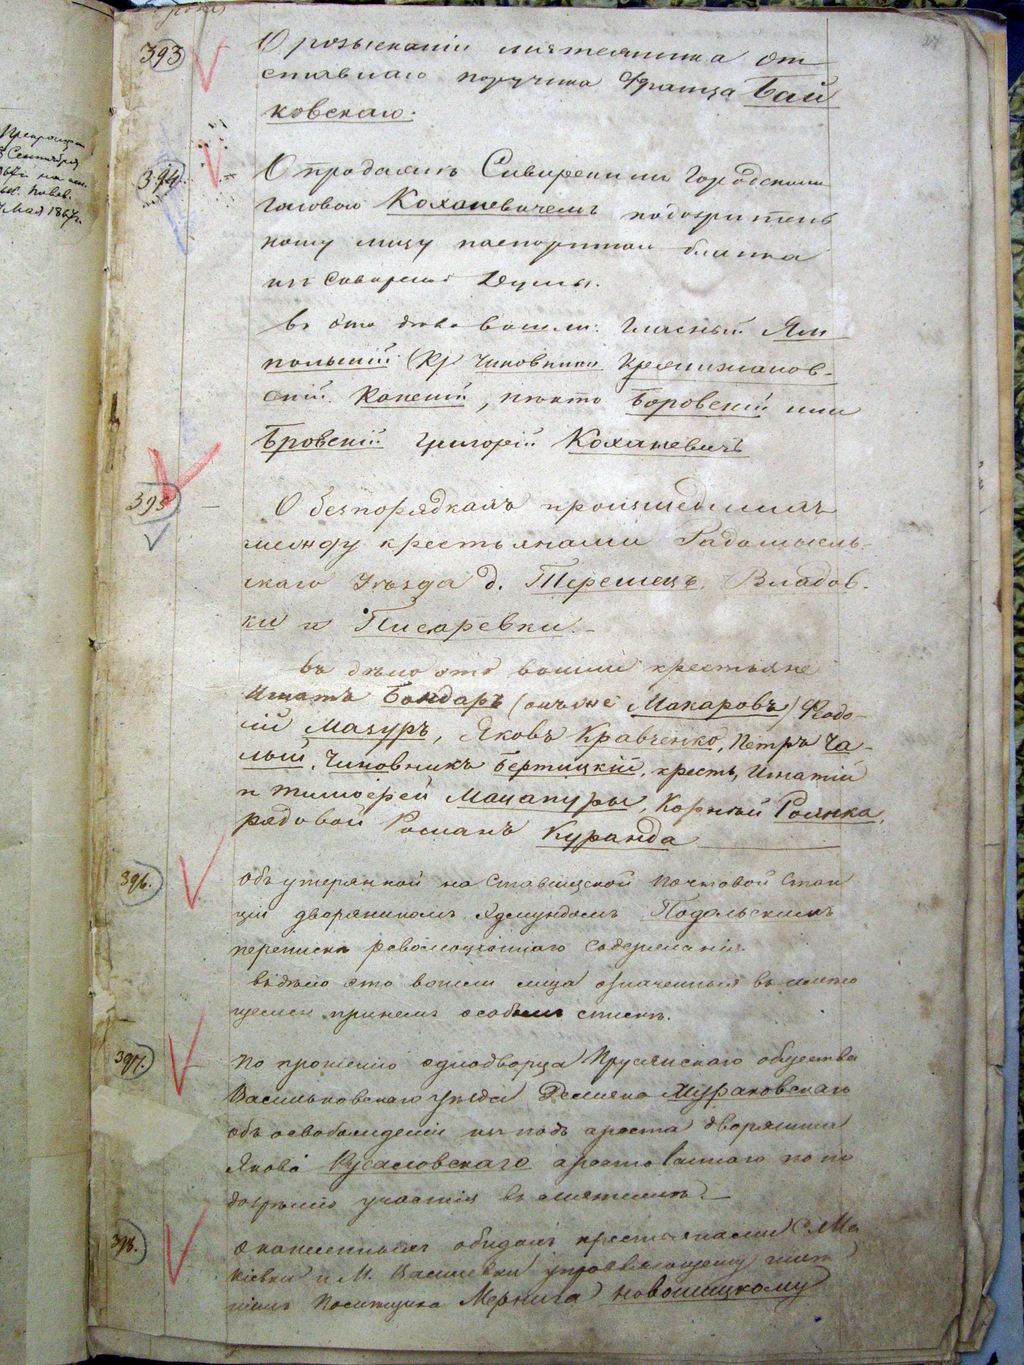 393
О розысканіи мятежника от
ставнаго поручика Франца Бай
ковскаго.
394.
О продажѣ Сквирскимъ Городскимъ
головою Коханевичемъ подозритель
ному лицу паспортнаго бланка
изъ Сквирской Думы.
въ это дѣло вошли: Гласный Ям
польскій (Кр Чиновники Крыжановъ-
скій. Копскій, некто Боровскій или
Бровскій Григорій Коханевичъ
395
О безпорядкахъ происшедшихъ
между крестьянами Радомысль-
скаго Уѣзда д. Терешецъ, Владов-
ки и Писаревки.
въ дѣло это вошли крестьяне
Игнатъ Бондарь (онъ же Макаровъ) Федо-
сій Мазуръ, Яковъ Кравченко, Петръ Ча-
лый, Чиновникъ Бертицкій, крест. Игнатій
и Тимофей Мацапуры, Корній Роянка,
рядовой Романъ Куранда
396.
Объ утерянной на Ставищской почтовой Стан
ціи дворяниномъ Эдмундомъ Подольскимъ
переписки революціоннаго содержанія.
въ дѣло это вошли лица означенныя въ имею
щемся при немъ особомъ спискѣ.
397.
По прошенію однодворца общества
Васильковскаго уѣзда Мураковскаго
объ освобожденіи изъ подъ ареста дворянина
Якова Русаловскаго арестованнаго по по
дозрѣнію участія въ мятежѣ.
398.
О нанесенныхъ обидахъ крестьянами С. Ма
кіевки и М. управляющему имѣ
ніемъ Помѣщика Новошицкому
Прекращено
Сентября
Мая 1867 г.